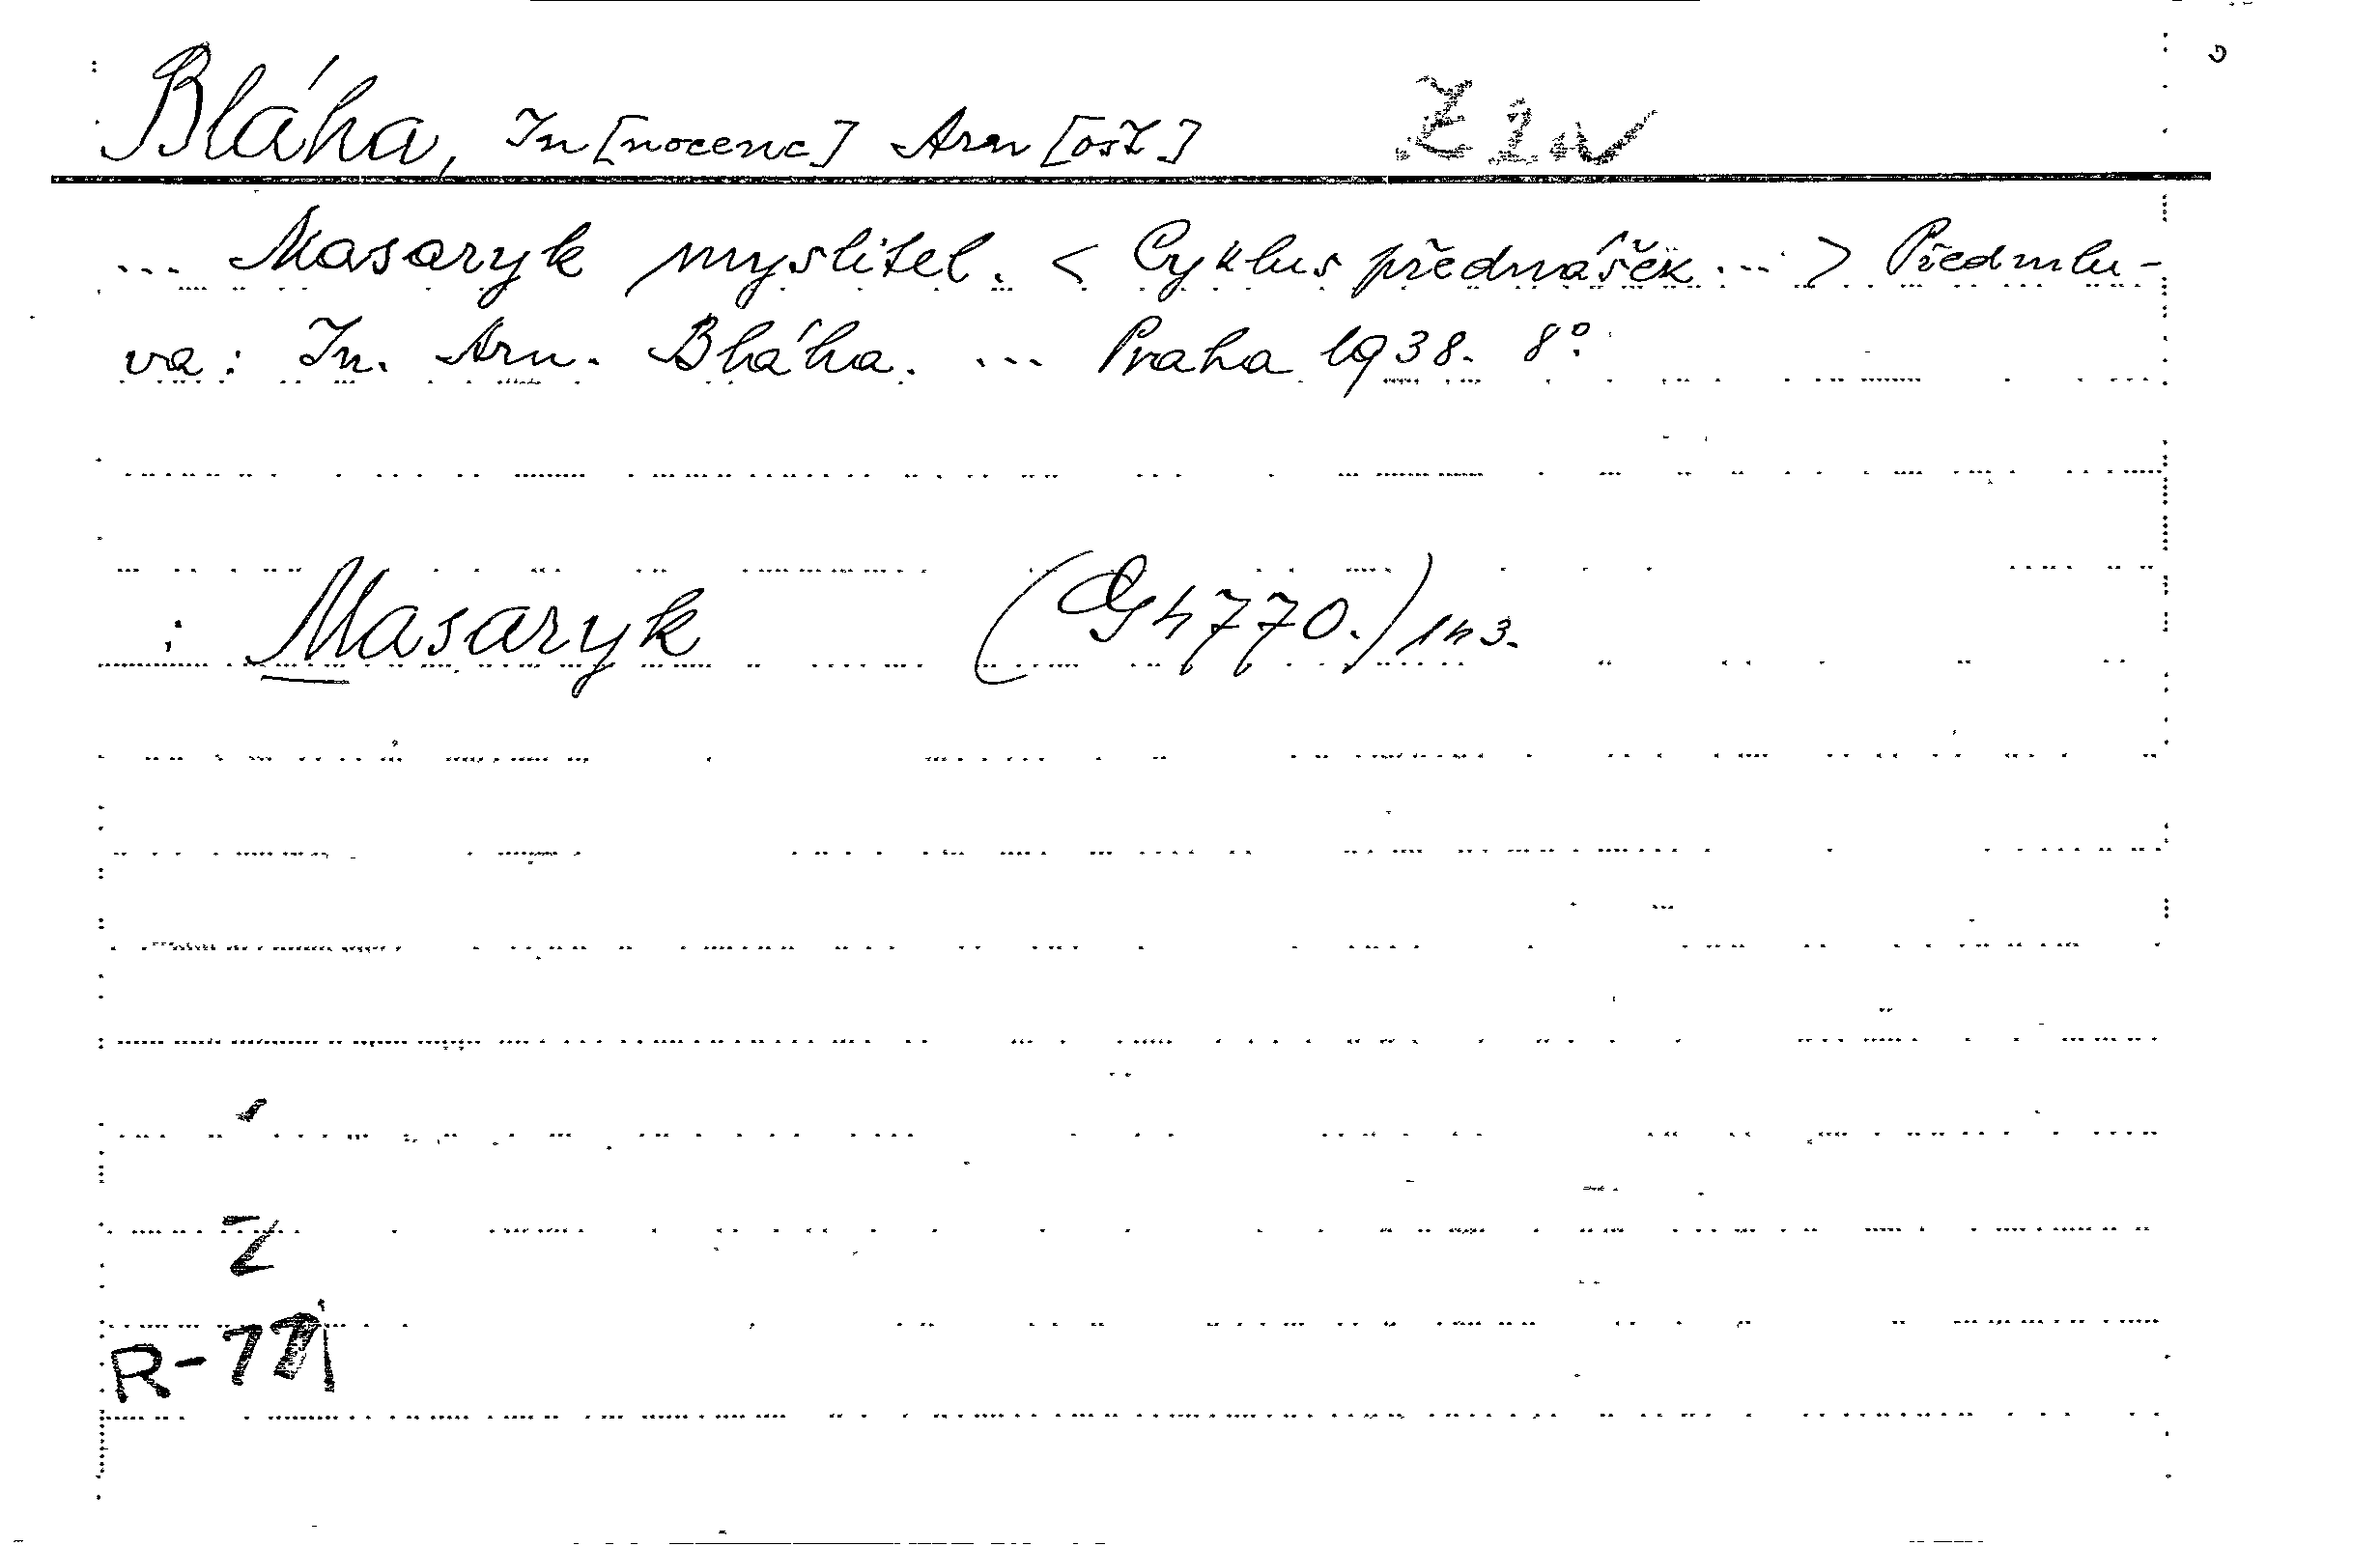 Bláha, In[nocenc] Arn[ošt]
... Masaryk myslitel. < Cyklus přednášek ... > Předmlu-
va: In. Arn. Bláha. ... Praha 1938. 8°.
: Masaryk (Gh 770.) / 1h3.
Z
R-